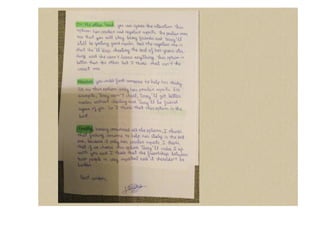 On the other hand, you can ignore the situation. This
option has positive and negative aspects. The positive ones
are that you will stay being friends and Tracy'll
still be getting good marks. But the negative one is
that she'll keep cheating the rest of her years stu-
dying and she won't learn anything. This option is
better than the other but I think that isn't the
correct one.
Moreover, you could find someone to help her study.
In my opinion this option only has positive aspects. For
example, Tracy won't cheat, Tracy'll get better
marks without cheating and Tracy'll be friend
again of you. So I think that this option is the
best.
Finally, having considered all the options, I think
that finding someone to help her study is the best
one, because it only has positive aspects. I think
that if we choose this option Tracy'll make it up
with you and I think that the friendship between
two people is very important and it shouldn't be
broken.
Best wishes,